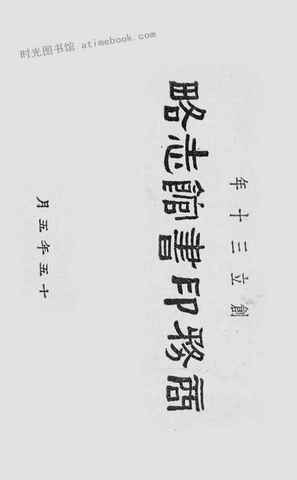 时光图书馆 atimebook.com
創立三十年
商務印書館志略
十五年五月